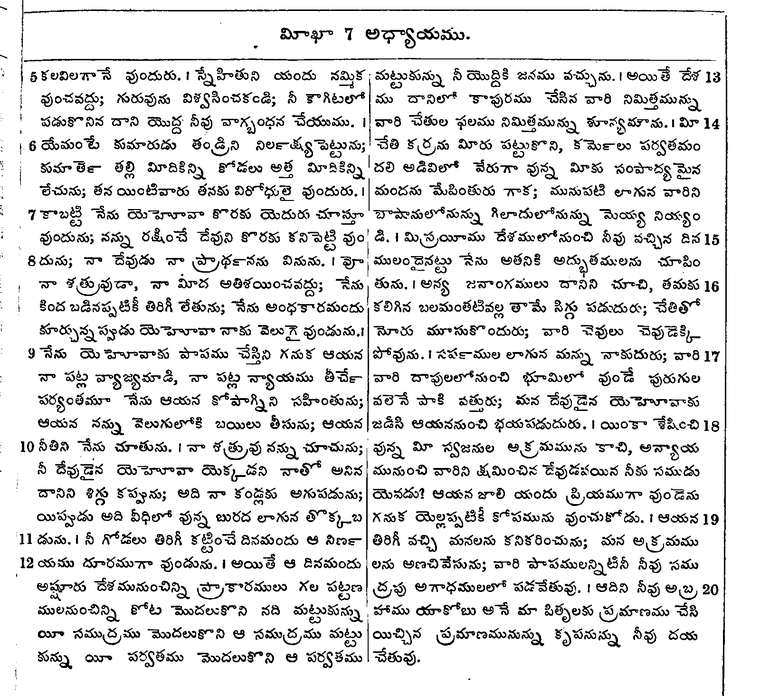 మీఖా 7 అధ్యాయము.
5 కలవిలగానే వుందురు. । స్నేహితుని యందు నమ్మిక
వుంచవద్దు; గురువును విశ్వసించకండి; నీ కాగిటలో
పడుకొనిన దాని యొద్ద నీవు వాగ్బంధన చేయుము. ।
6 యేమంటే కుమారుడు తండ్రిని నిలణక్ష్యపెట్టును;
కుమాతెణ తల్లి మీదికిన్ని కోడలు అత్త మీదికిన్ని
లేచును; తన యింటివారు తనకు విరోధులై వుందురు. ।
7 కాబట్టి నేను యెహోవా కొరకు యెదురు చూస్తూ
వుందును; నన్ను రక్షించే దేవుని కొరకు కనిపెట్టి వుం
8 దును; నా దేవుడు నా ప్రాథణనను వినును. । వో
నా శత్రువుడా, నా మీద అతిశయించవద్దు; నేను
కింద బడినప్పటికీ తిరిగీ లేతును; నేను అంధకారమందు
కూర్చున్నప్పుడు యెహోవా నాకు వెలుగై వుండును. ।
9 నేను యెహోవాకు పాపము చేస్తిని గనుక ఆయన
నా పట్ల వ్యాజ్యమాడి, నా పట్ల న్యాయము తీర్చే
పర్యంతమూ నేను ఆయన కోపాగ్నిని సహింతును;
ఆయన నన్ను వెలుగులోకి బయిలు తీసును; ఆయన
10 నీతిని నేను చూతును. । నా శత్రువు నన్ను చూచును;
నీ దేవుడైన యెహోవా యెక్కడని నాతో అనిన
దానిని శిగ్గు కప్పును; అది నా కండ్లకు అగుపడును;
యిప్పుడు అది వీధిలో వున్న బురద లాగున తొక్కబ
11 డును. । నీ గోడలు తిరిగీ కట్టించే దినమందు ఆ నిణణ
12 యము దూరముగా వుండును. । అయితే ఆ దినమందు
అష్షూరు దేశమునుంచిన్ని ప్రాకారములు గల పట్టణ
ములనుంచిన్ని కోట మొదలుకొని నది మట్టుకున్ను
యీ సముద్రము మొదలుకొని ఆ సముద్రము మట్టు
కున్ను యీ పర్వతము మొదలుకొని ఆ పర్వతము
మట్టుకున్ను నీ యొద్దికి జనము వచ్చును. । అయితే దేశ 13
ము దానిలో కాపురము చేసిన వారి నిమిత్తమున్ను
వారి చేతుల ఫలము నిమిత్తమున్ను శూన్యమౌను. । మీ 14
చేతి కర్రను మీరు పట్టుకొని, కమేణలు పర్వతము
దలి అడివిలో వేరుగా వున్న మీకు సంపాద్యమైన
మందను మేపింతురు గాక; మునుపటి లాగున వారిని
బాషానులోనున్ను గిలాదులోనున్ను మెయ్య నియ్యం
డి. । మిస్రయీము దేశములోనుంచి నీవు వచ్చిన దిన 15
ములందైనట్టు నేను అతనికి అద్భుతములను చూపిం
తును. । అన్య జనాంగములు దానిని చూచి, తమకు 16
కలిగిన బలమంతటివల్ల తామే సిగ్గు పడుదురు; చేతితో
నోరు మూసుకొందురు; వారి చెవులు చెవుడెక్కి
పోవును. । సపణముల లాగున మన్ను నాకుదురు; వారి 17
వారి దాపులలోనుంచి భూమిలో వుండే పురుగుల
వలెనే పాకి వత్తురు; మన దేవుడైన యెహోవాకు
జడిసి ఆయననుంచి భయపడుదురు. । యింకా శేషించి 18
వున్న మీ స్వజనుల అక్రమమును కాచి, అన్యాయ
మునుంచి వారిని క్షమించిన దేవుడవయిన నీకు సముడు
యెవడు? ఆయన జాలి యందు ప్రియముగా వుండెను
గనుక యెల్లప్పటికీ కోపమును వుంచుకోడు. । ఆయన 19
తిరిగీ వచ్చి మనలను కనికరించును; మన అక్రమము
లను అణచివేసును; వారి పాపములన్నిటినీ నీవు సము
ద్రపు అగాధములలో పడవేతువు. । ఆదిని నీవు అబ్ర 20
హాము యాకోబు అనే మా పితృలకు ప్రమాణము చేసి
యిచ్చిన ప్రమాణమునున్ను కృపనున్ను నీవు దయ
చేతువు.